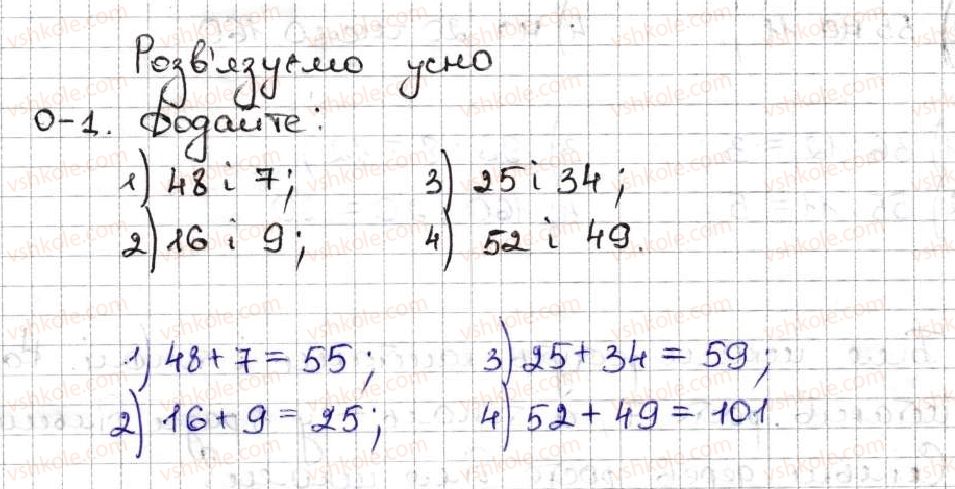 Розв'язуємо усно
0-1. Додайте:
1) 48 і 7; 3) 25 і 34;
2) 16 і 9; 4) 52 і 49.
1) 48 + 7 = 55; 3) 25 + 34 = 59;
2) 16 + 9 = 25; 4) 52 + 49 = 101.